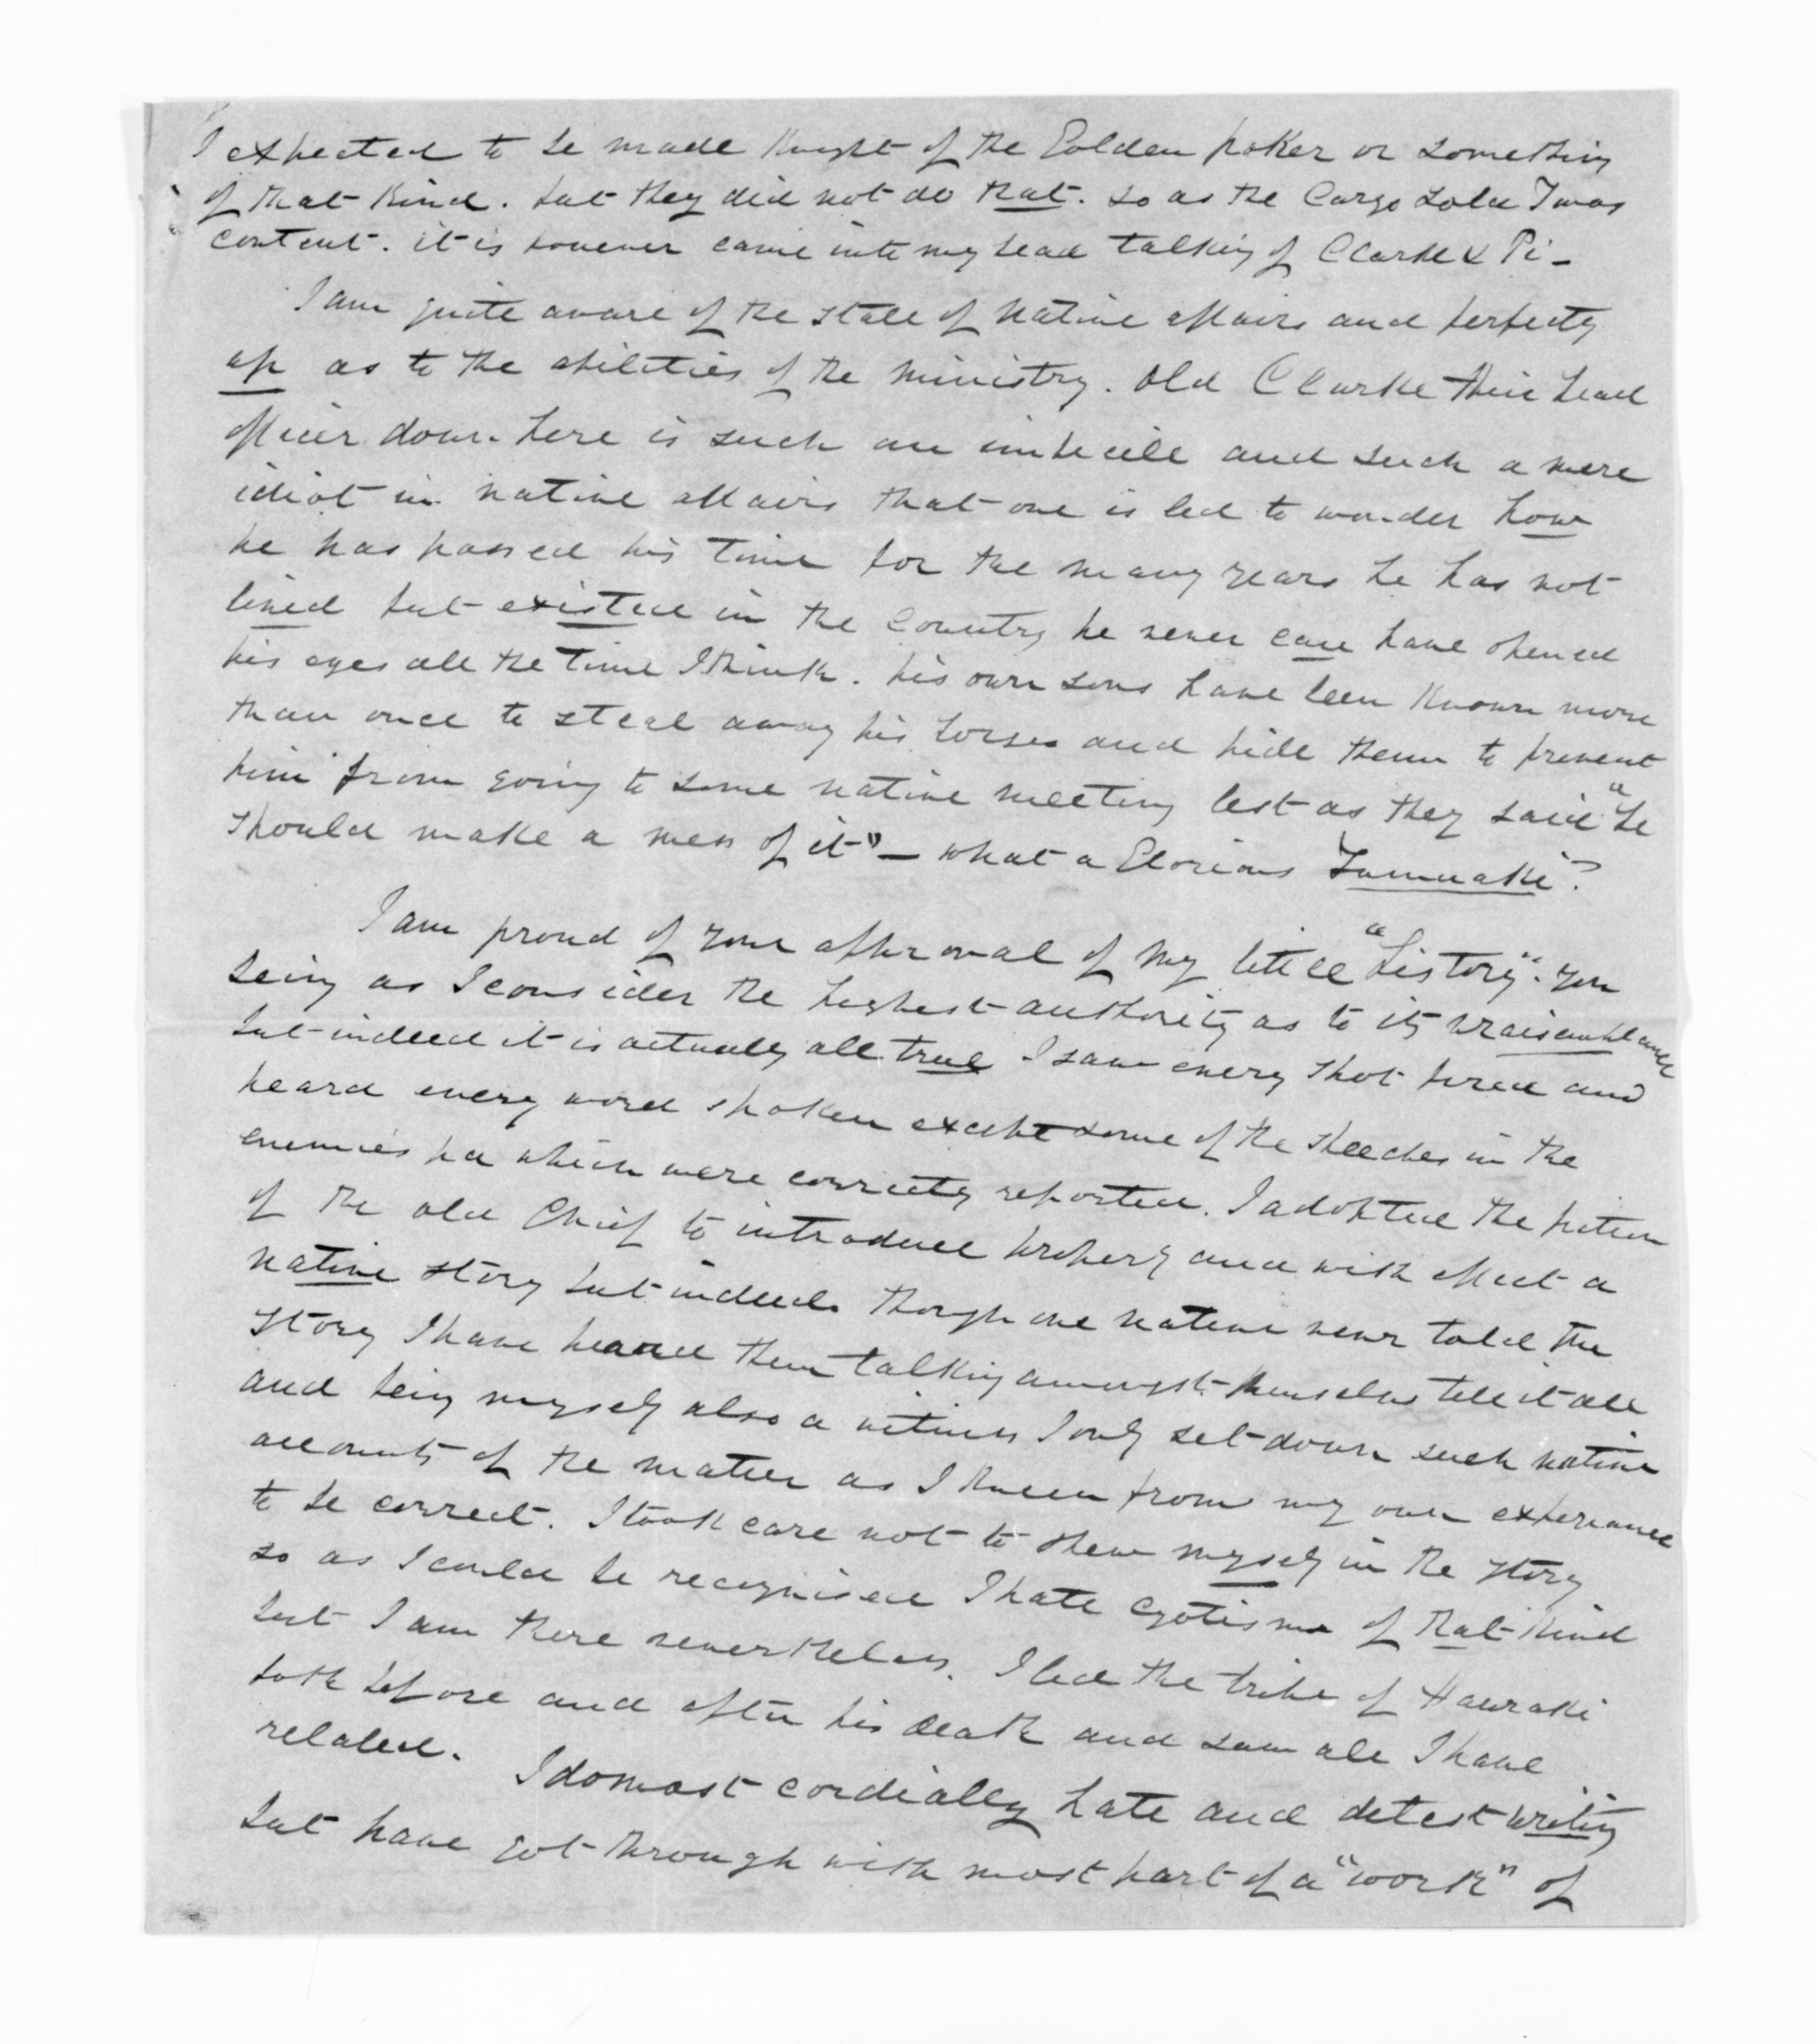 I expected to be made Knight of the Golden poker or something
of that kind. but they did not do that. so as the Cargo sold I was
content. it is however came into my head talking of Clarke & Pi -
I am quite aware of the state of native affairs and perfectly
up as to the abilities of the ministry. Old Clarke their head
officer down here is such an imbecile and such a mere
idiot in native affairs that one is led to wonder how
he has passed his time for the many years he has not
lived but existed in the country he never can have opened
his eyes all the time I think. his own sons have been known more
than once to steal away his horses and hide them to prevent
him from going to some native meeting lest as they said "he
should make a mess of it" — what a Glorious Tumuaki?
I am proud of your approval of my little "history". you
being as I consider the highest authority as to its vraisemblance
but indeed it is actually all true I saw every shot fired and
heard every word spoken except some of the speeches in the
enemies pa which were correctly reported. I adopted the fiction
of the old Chief to introduce properly and with effect a
native story but indeed though one native never told the
story I have heard them talking amongst themselves tell it all
and being myself also a witness I only set down such native
accounts of the matter as I knew from my own experiance
to be correct. I took care not to shew myself in the story
so as I could be recognised I hate egotism of that kind
but I am there nevertheless. I led the tribe of Hauraki
both before and after his death and saw all I have
related. I do most cordially hate and detest writing
but have got through with most part of a "work" of